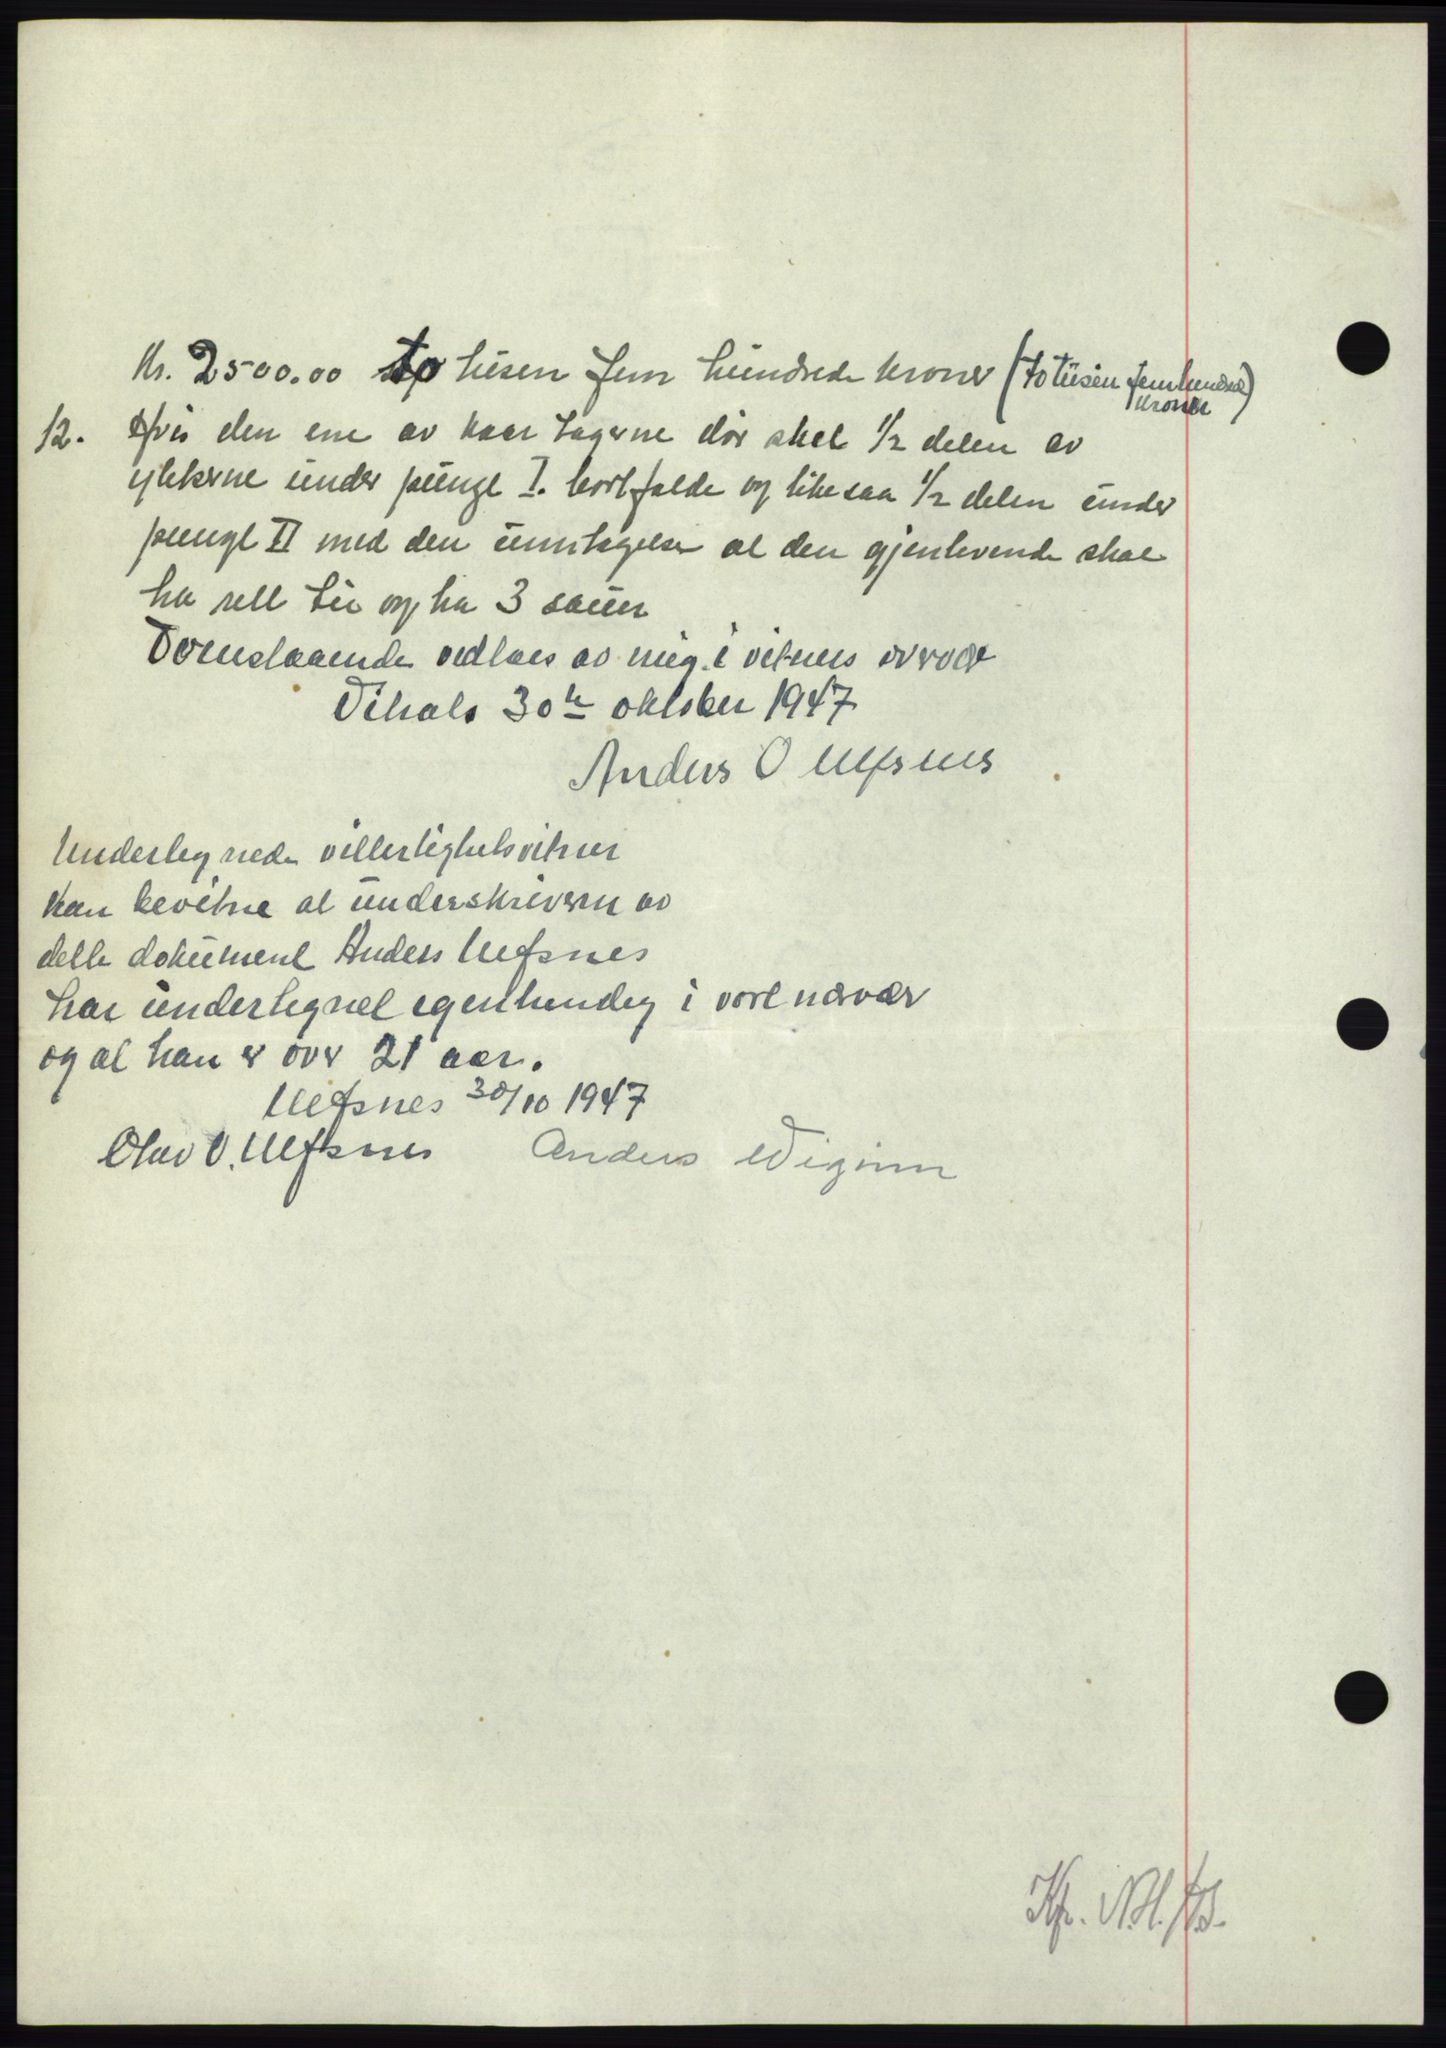 Kr. 2500.00 to tusen fem hundrede kroner (to tusen femhundrede
kroner)
12. Hvis den ene av kaar tagerne dør skal 1/2 delen av
ytelserne under pungt I. bortfalde og likesaa 1/2 delen under
pungt II med den unntagelse at den gjenlevende skal
ha rett til og ha 3 sauer
Ovenstaaende vedtaes av mig i vitners overvær
Vihals 30te oktober 1947
Anders O Ulfsnes
Undertegnede vitterlighetsvitner
kan bevitne at underskriveren av
dette dokument Anders Ulfsnes
har undertegnet egenhendig i vort nærvær
og at han er over 21 aar.
Ulfsnes 30/10 1947
Olav O. Ulfsnes Anders
Kfr.